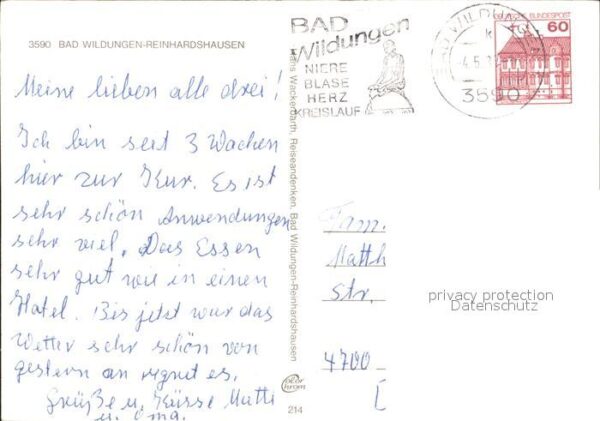 3590 BAD WILDUNGEN-REINHARDSHAUSEN
Meine lieben alle drei!
Ich bin seit 3 Wochen
hier zur Kur. Es ist
sehr schön Anwendungen
sehr viel. Das Essen
sehr gut wie in einen
Hotel. Bis jetzt war das
Wetter sehr schön von
gestern an regnet es.
Grüße u. Küsse Mutti
u. Oma.
Hans Wackerbarth, Reiseandenken, Bad Wildungen-Reinhardshausen
214
BAD
Wildungen
NIERE
BLASE
HERZ
KREISLAUF
3590
DEUTSCHE BUNDESPOST
60
Fam.
Matth
Str.
4700
privacy protection
Datenschutz